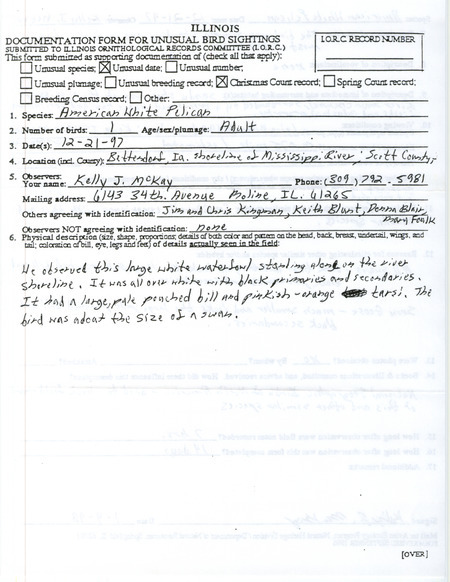 ILLINOIS
DOCUMENTATION FORM FOR UNUSUAL BIRD SIGHTINGS
SUBMITTED TO ILLINOIS ORNITHOLOGICAL RECORDS COMMITTEE (I.O.R.C.)
I.O.R.C. RECORD NUMBER
This form submitted as supporting documentation of (check all that apply):
Unusual species; Unusual date; Unusual number;
Unusual plumage; Unusual breeding record; Christmas Count record; Spring Count record;
Breeding Census record; Other:
1. Species: American White Pelican
2. Number of birds: 1 Age/sex/plumage: Adult
3. Date(s): 12-21-97
4. Location (incl. County): Bettendorf, Ia. shoreline of Mississippi River; Scott County;
5. Observers:
Your name: Kelly J. McKay Phone: (309) 792-5981
Mailing address: 6143 34th. Avenue Moline, IL. 61265
Others agreeing with identification: Jim and Chris Kingman, Keith Blunt, Donna Blair,
Foulk
Observers NOT agreeing with identification: none
6. Physical description (size, shape, proportions; details of both color and pattern on the head, back, breast, undertail, wings, and
tail; coloration of bill, eye, legs and feet) of details actually seen in the field:
We observed this large white waterfowl standing along on the river
shoreline. It was all over white with black primaries and secondaries.
It had a large, pale pouched bill and pinkish-orange tarsi. The
bird was adout the size of a swan.
[OVER]